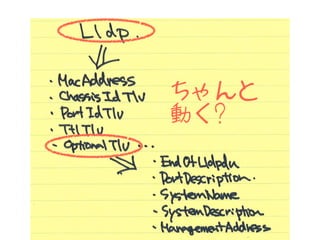 Lldp.
・MacAddress
・ChassisIdTlv
・PortIdTlv
・TtlTlv
・OptionalTlv ...
ちゃんと
動く?
・EndOfLldpdu
・PortDescription.
・SystemName
・SystemDescription
・ManagementAddress